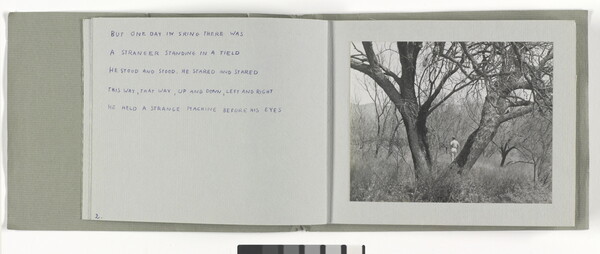 BUT ONE DAY IN SPRING THERE WAS
A STRANGER STANDING IN A FIELD
HE STOOD AND STOOD. HE STARED AND STARED
THIS WAY, THAT WAY, UP AND DOWN, LEFT AND RIGHT
HE HELD A STRANGE MACHINE BEFORE HIS EYES